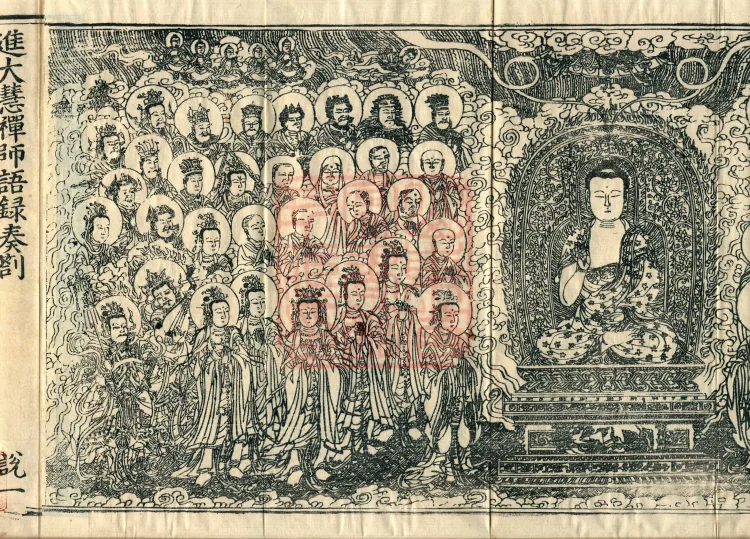 進大慧禪師語録奏劄
説一